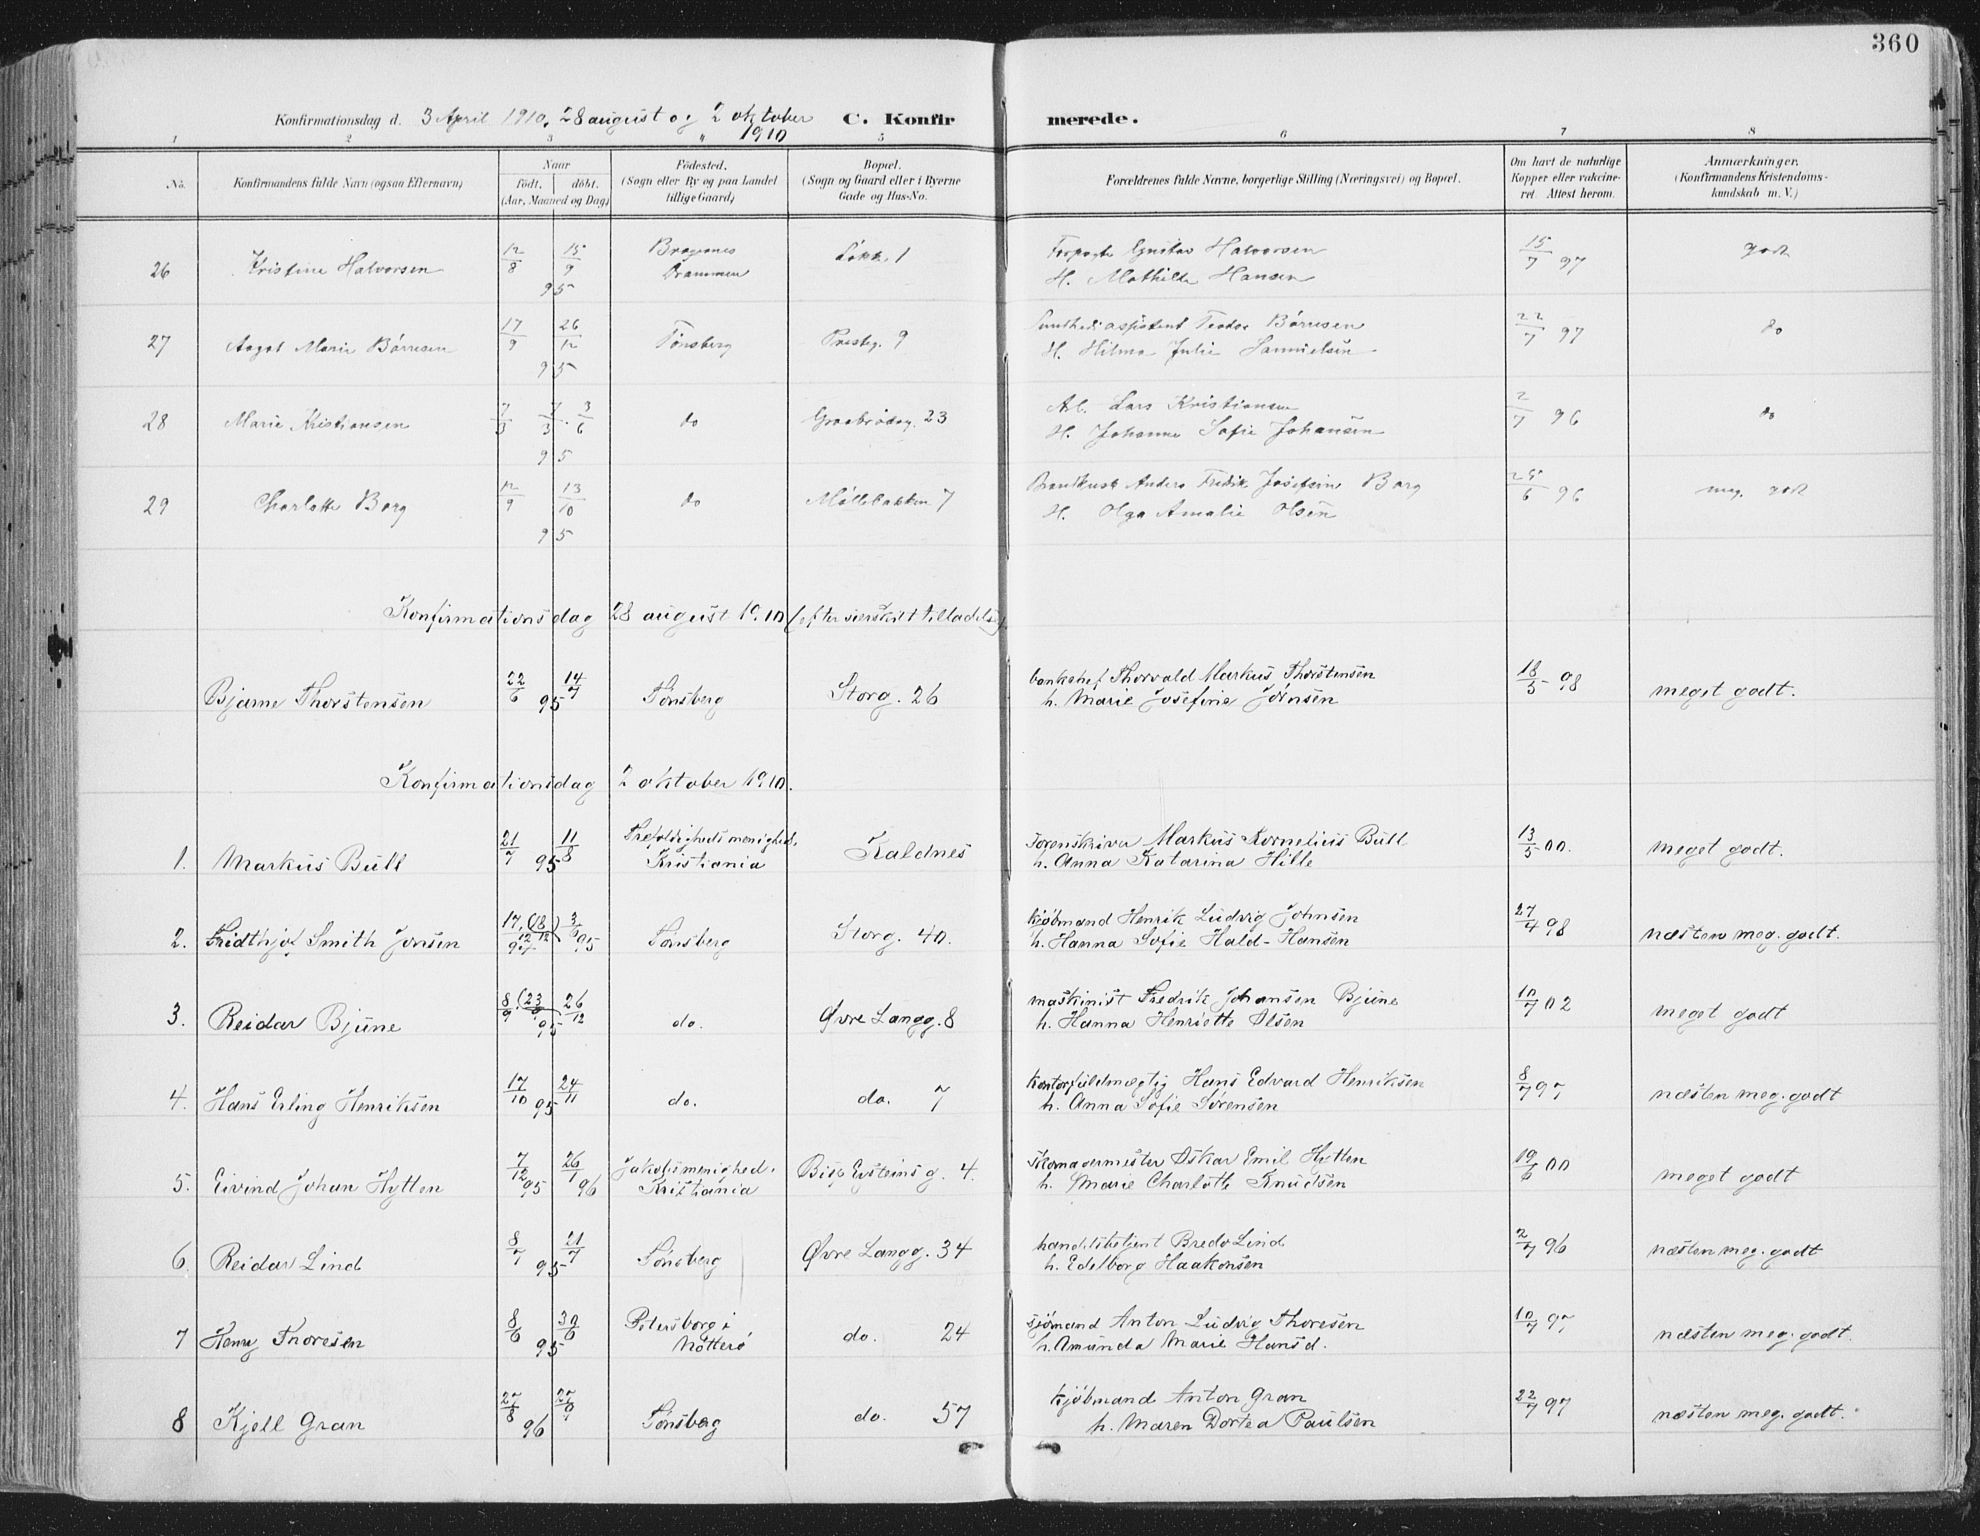 360
Konfirmationsdag d. 3 April 1910, 28 august og 2 oktober 1910
C. Konfirmerede.
1 2 3 4 5 6 7 8
No. Konfirmandens fulde Navn (ogsaa Efternavn) Naar født. døbt. (Aar, Maaned og Dag) Fødested. (Sogn eller By og paa Landet tillige Gaard) Bopæl. (Sogn og Gaard eller i Byerne Gade og Hus-No. Forældrenes fulde Navne, borgerlige Stilling (Næringsvei) og Bopæl. Om havt de naturlige Kopper eller vakcineret. Attest herom. Anmærkninger. (Konfirmandens Kristendomskundskab m. V.)
26 Kristine Halvorsen 12/8 15/9 95 Bragernes Drammen Løkk. 1 Gustav Halvorsen 15/7 97 godt
H. Mathilde Hansen
27 Aagot Marie Børresen 17/9 26/12 95 Tønsberg Prestg. 9 Teodor Børresen 22/7 97 do
H. Hilma Julie Samuelsen
28 Marie Kristiansen 7/3 3/6 95 do Graabrødrg. 23 Arb. Lars Kristiansen 2/7 96 do
H. Johanne Sofie Johansen
29 Charlotte Borg 12/9 13/10 95 do Møllebakken 7 Anders Fredrik Josefsen Borg 25/6 96 meg. godt
H. Olga Amalie Olsen
Konfirmationsdag 28 august 1910 (efter særskilt tilladelse)
Bjarne Thorstensen 22/6 14/7 95 Tønsberg Storg. 26 bankchef Thorvald Markus Thorstensen 18/5 98 meget godt.
h. Marie Josefine Jørnsen
Konfirmationsdag 2 oktober 1910.
1. Markus Bull 21/7 11/8 95 Trefoldigheds menighed. Kristiania Kaldnes sorenskriver Markus Kornelius Bull 13/5 00. meget godt.
h. Anna Katarina Hille
2. Fridthjof Smith Jonsen 17/12 (18/12) 94 3/6 95 Tønsberg Storg. 40. kjøbmand Henrik Ludvig Johnsen 27/4 98 næsten meg. godt.
h. Hanna Sofie Hald-Hansen
3. Reidar Bjune 8/9 (23/9) 26/12 95 do. Øvre Langg. 8 maskinist Fredrik Johansen Bjune 10/7 02 meget godt
h. Hanna Henriette Olsen
4. Hans Erling Henriksen 17/10 24/11 95 do. do. 7 kontorfuldmægtig Hans Edvard Henriksen 8/7 97 næsten meg. godt
h. Anna Sofie Sørensen
5. Eivind Johan Hytten 7/12 95 26/1 96 Jakobsmenighed. Kristiania Bisp Eysteins g. 4. skomagermester Oskar Emil Hytten 19/6 00 meget godt
h. Marie Charlotte Knudsen
6 Reidar Lind 8/7 21/7 95 Tønsberg Øvre Langg. 34 handelsbetjent Bredo Lind 2/7 96 næsten meg. godt
h. Edelborg Haakonsen
7 Henry Thoresen 8/6 30/6 95 Petersborg i Nøtterø do. 24 sjømand Anton Ludvig Thoresen 10/7 97 næsten meg. godt.
h. Amunda Marie Hansd.
8 Kjell Gran 27/8 96 Tønsberg do. 57 kjøbmand Anton Gran 22/7 97 næsten meg. godt.
h. Maren Dortea Paulsen